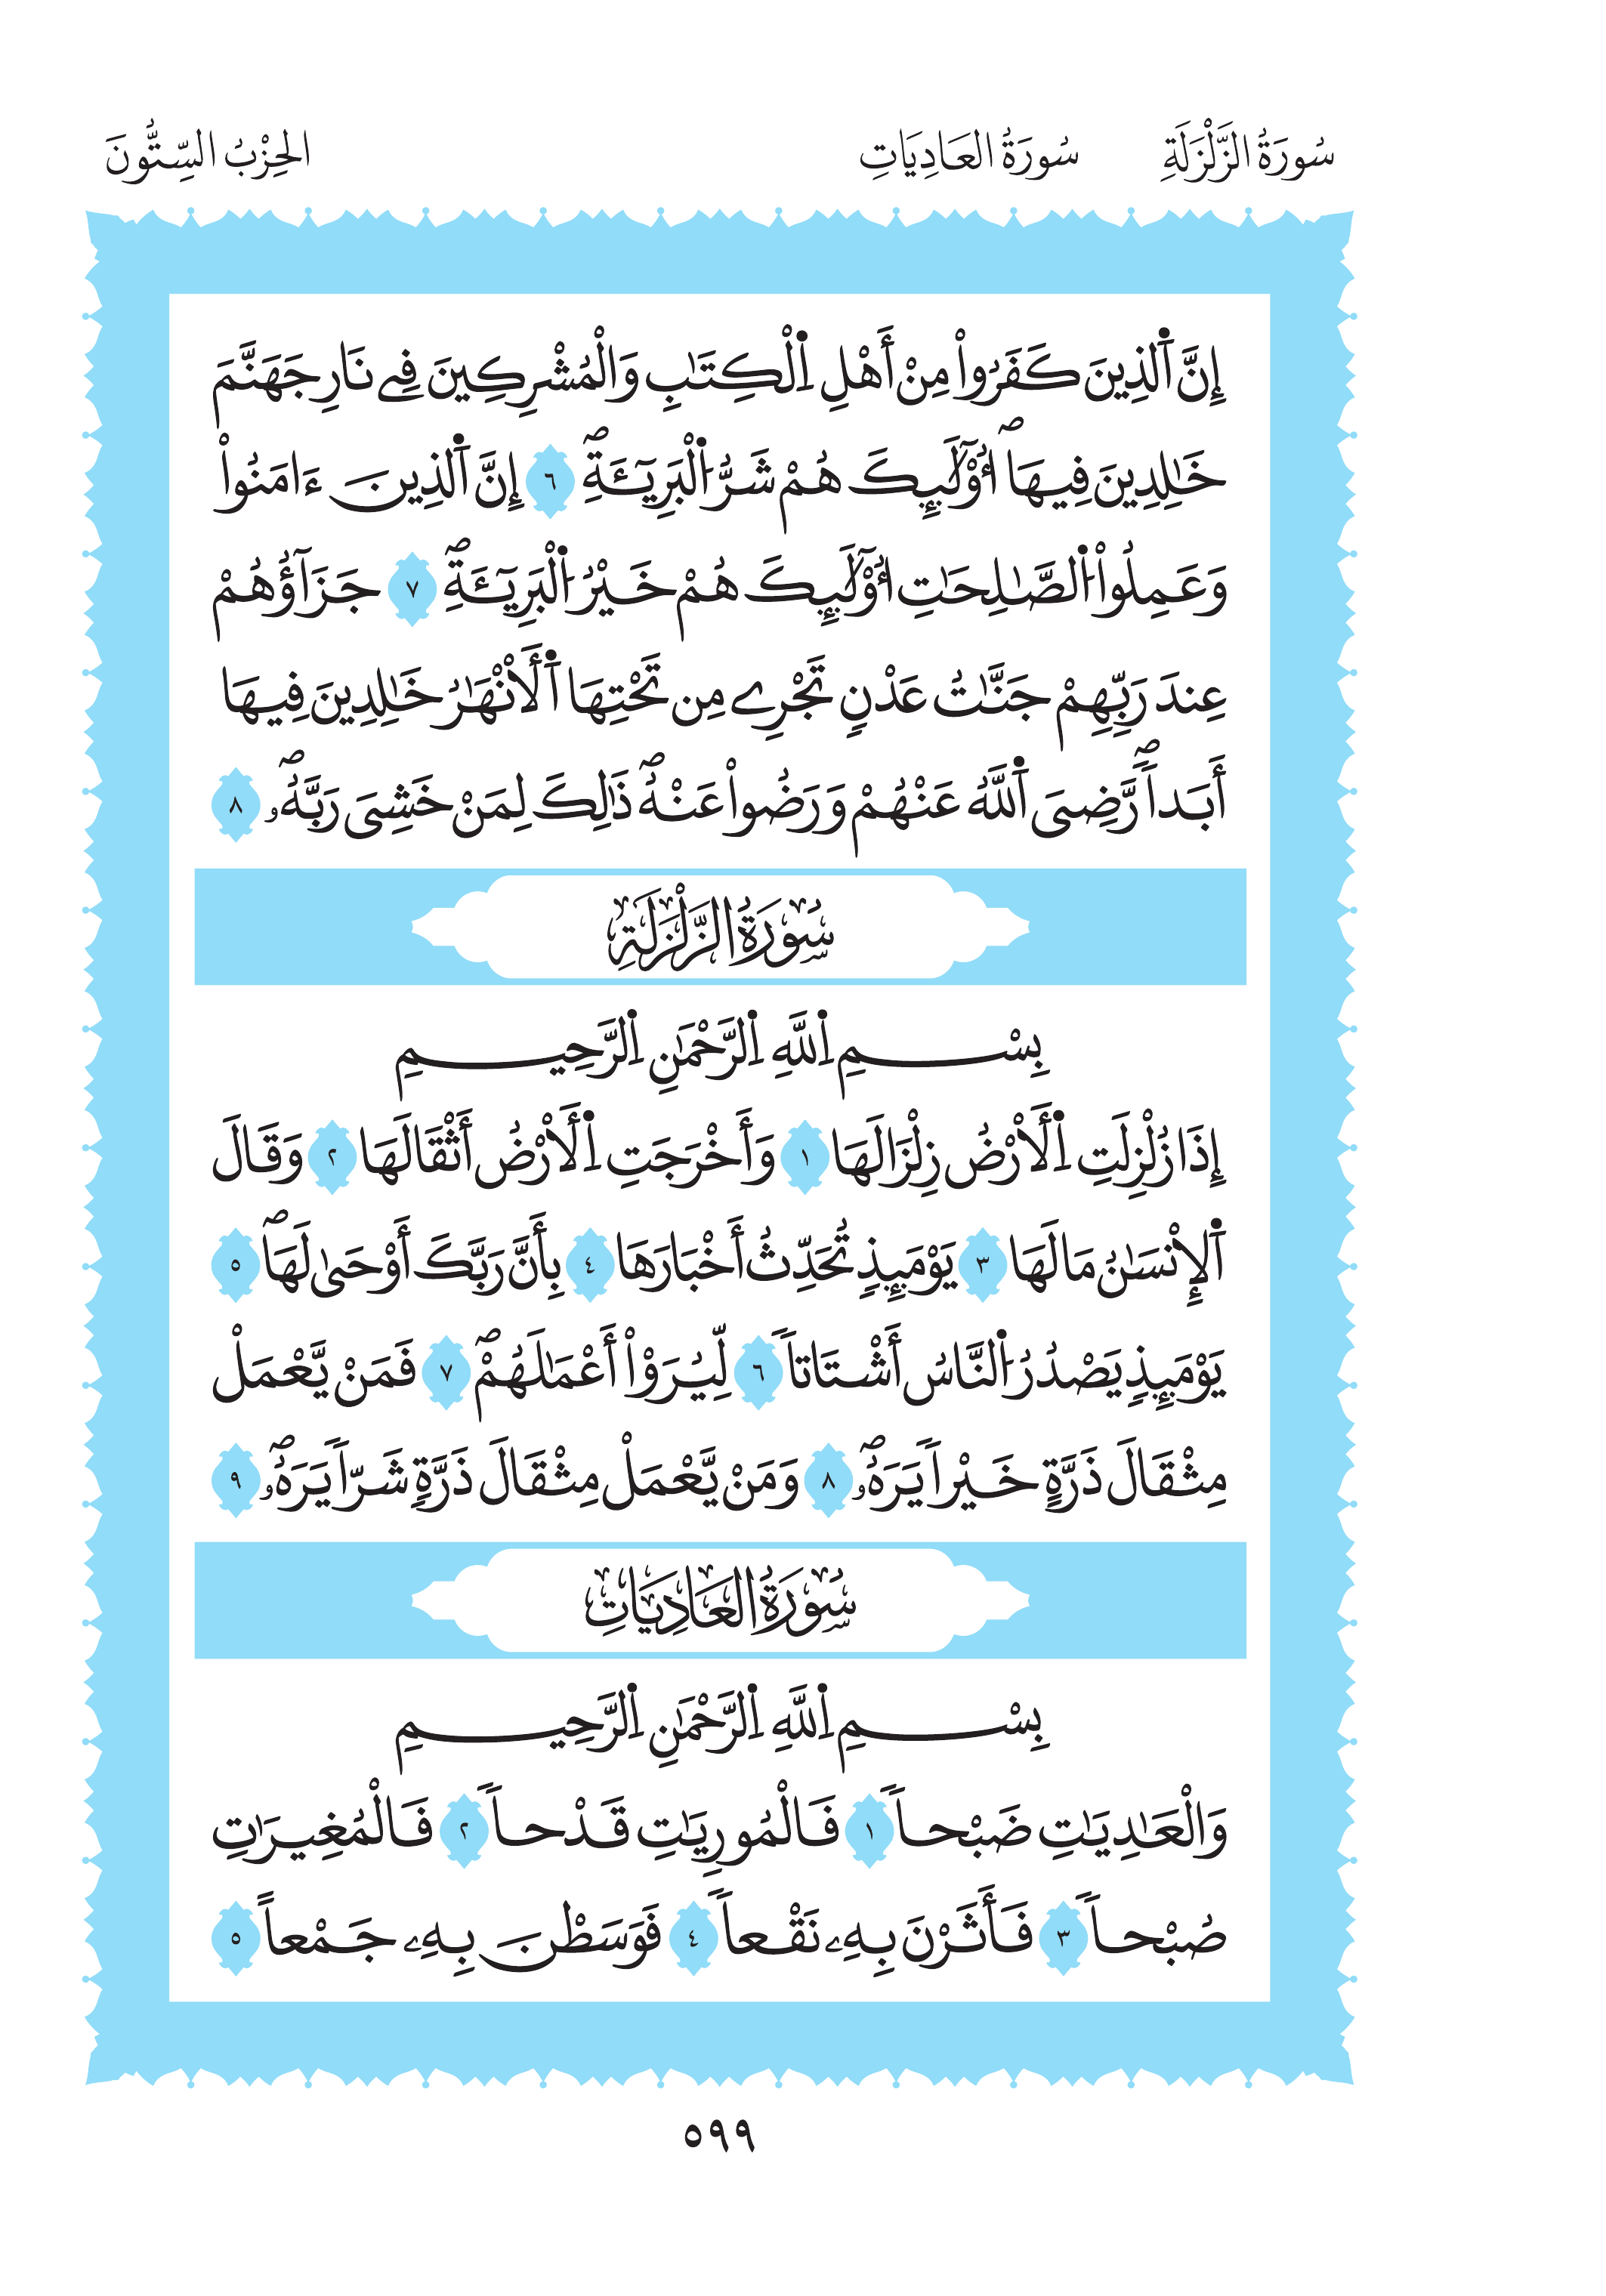 سُورَةُ الزَّلْزَلَةِ سُورَةُ العَادِيَاتِ الحِزْبُ السِّتُّونَ
إِنَّ اَ۬لذِينَ كَفَرُواْ مِنْ أَهْلِ اِ۬لْكِتَٰبِ وَالْمُشْرِكِينَ فِے نَارِ جَهَنَّمَ
خَٰلِدِينَ فِيهَاۖ أُوْلَٰٓئِكَ هُمْ شَرُّ اُ۬لْبَرِيٓـَٔةِۖ ٦ إِنَّ اَ۬لذِينَ ءَامَنُواْ
وَعَمِلُواْ اُ۬لصَّٰلِحَٰتِ أُوْلَٰٓئِكَ هُمْ خَيْرُ اُ۬لْبَرِيٓـَٔةِۖ ٧ جَزَآؤُهُمْ
عِندَ رَبِّهِمْ جَنَّٰتُ عَدْنٍ تَجْرِے مِن تَحْتِهَا اَ۬لَانْهَٰرُ خَٰلِدِينَ فِيهَا
أَبَداٗۖ رَّضِيَ اَ۬للَّهُ عَنْهُمْ وَرَضُواْ عَنْهُۖ ذَٰلِكَ لِمَنْ خَشِيَ رَبَّهُۥۖ ٨
سُورَةُ الزَّلْزَلَةِ
بِسْمِ اِ۬للَّهِ اِ۬لرَّحْمَٰنِ اِ۬لرَّحِيمِ
إِذَا زُلْزِلَتِ اِ۬لَارْضُ زِلْزَالَهَا ١ وَأَخْرَجَتِ اِ۬لَارْضُ أَثْقَالَهَا ٢ وَقَالَ
اَ۬لِانسَٰنُ مَا لَهَا ٣ يَوْمَئِذٍ تُحَدِّثُ أَخْبَارَهَا ٤ بِأَنَّ رَبَّكَ أَوْحَىٰ لَهَاۖ ٥
يَوْمَئِذٍ يَصْدُرُ اُ۬لنَّاسُ أَشْتَاتاٗ ٦ لِّيُرَوْاْ أَعْمَٰلَهُمْۖ ٧ فَمَنْ يَّعْمَلْ
مِثْقَالَ ذَرَّةٍ خَيْراٗ يَرَهُۥۖ ٨ وَمَنْ يَّعْمَلْ مِثْقَالَ ذَرَّةٖ شَرّاٗ يَرَهُۥۖ ٩
سُورَةُ العَادِيَاتِ
بِسْمِ اِ۬للَّهِ اِ۬لرَّحْمَٰنِ اِ۬لرَّحِيمِ
وَالْعَٰدِيَٰتِ ضَبْحاٗ ١ فَالْمُورِيَٰتِ قَدْحاٗ ٢ فَالْمُغِيرَٰتِ
صُبْحاٗ ٣ فَأَثَرْنَ بِهِۦ نَقْعاٗ ٤ فَوَسَطْنَ بِهِۦ جَمْعاً ٥
٥٩٩